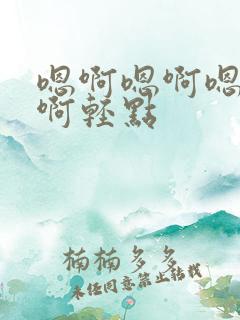 嗯啊嗯啊嗯
啊轻點
楠楠多多
未经同意禁止转载